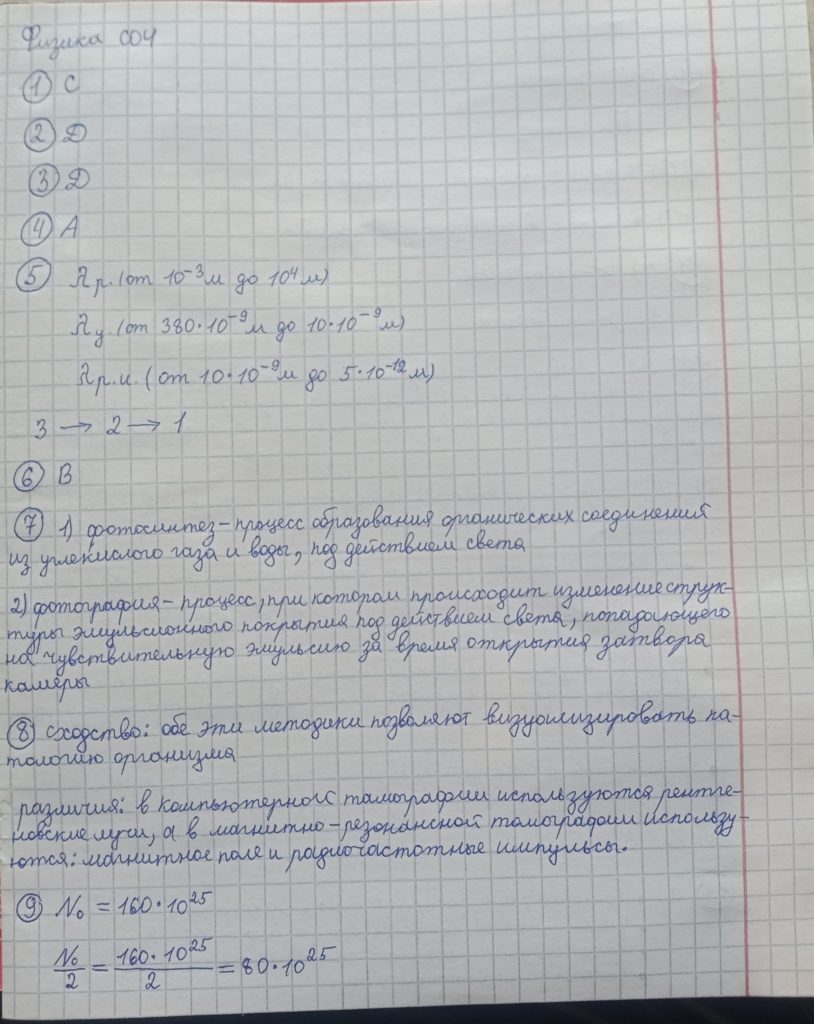 Физика СОЧ
① С
② D
③ D
④ А
⑤ λр. (от 10⁻³м до 10⁴м)
λу. (от 380·10⁻⁹м до 10·10⁻⁹м)
λр.и. (от 10·10⁻⁹м до 5·10⁻¹²м)
3 → 2 → 1
⑥ В
⑦ 1) фотосинтез – процесс образования органических соединений
из углекислого газа и воды, под действием света
2) фотография – процесс, при котором происходит изменение струк-
туры эмульсионного покрытия под действием света, попадающего
на чувствительную эмульсию за время открытия затвора
камеры
⑧ сходство: обе эти методики позволяют визуализировать па-
тологию организма
различия: в компьютерной тамографии используются рентге-
новские лучи, а в магнитно-резонансной томографии использу-
ются: магнитное поле и радиочастотные импульсы.
⑨ N₀ = 160·10²⁵
N₀/2 = 160·10²⁵/2 = 80·10²⁵